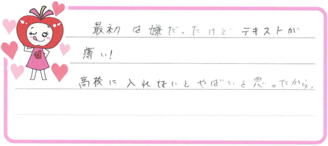 最初は嫌だったけどテキストが
薄い！
高校に入れないとやばいと思ったから。